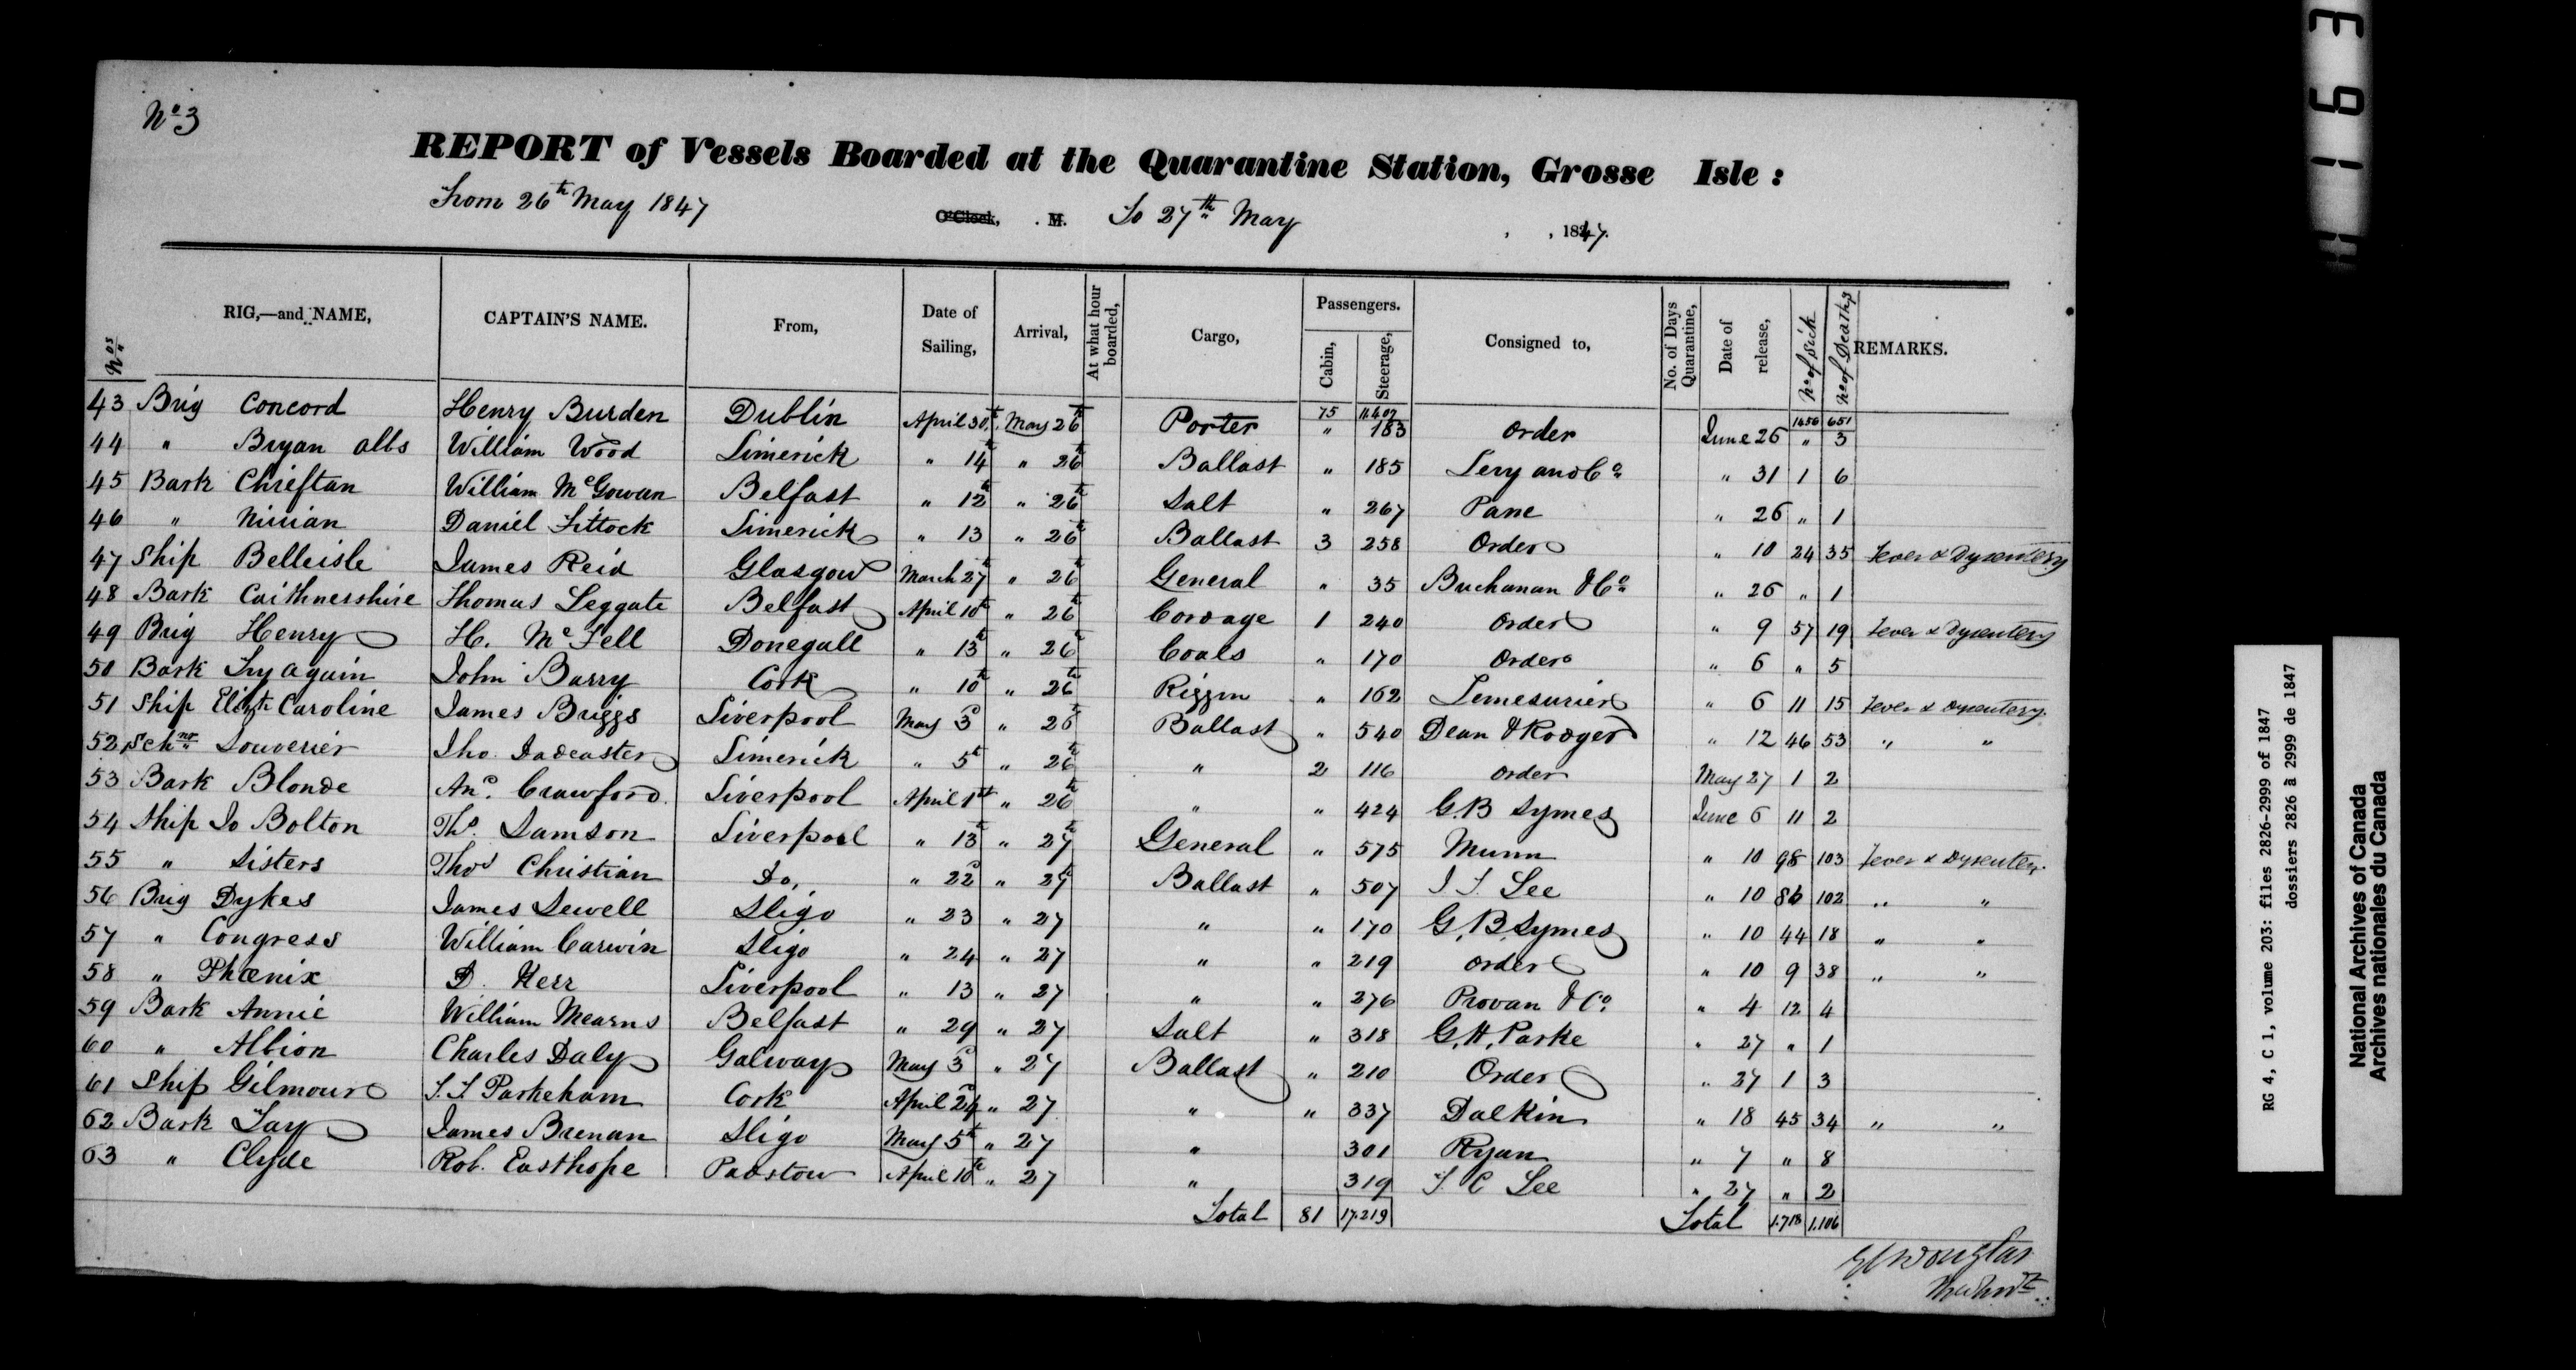 No 3
REPORT of Vessels Boarded at the Quarantine Station, Grosse Isle :
From 26th May 1847 O'Clock, . M. To 27th May , , 1847.
Nos RIG,—and NAME, CAPTAIN'S NAME. From, Date of Sailing, Arrival, At what hour boarded, Cargo, Passengers. Cabin, Steerage, Consigned to, No. of Days Quarantine, Date of release, No of Sick No of Deaths REMARKS.
75 11.407 1456 651
43 Brig Concord Henry Burden Dublin April 30th May 26th Porter " 183 Order June 26 " 3
44 " Bryan Abbs William Wood Limerick " 14th " 26th Ballast " 185 Levy and Co " 31 1 6
45 Bark Chieftan William McGowan Belfast " 12th " 26th Salt " 267 Pane " 26 " 1
46 " Ninian Daniel Fittock Limerick " 13 " 26th Ballast 3 258 Order " 10 24 35 Fever & Dysentery
47 Ship Belleisle James Reid Glasgow March 27th " 26th General " 35 Buchanan & Co " 26 " 1
48 Bark Caithnesshire Thomas Leggate Belfast April 10th " 26th Cordage 1 240 Order " 9 57 19 Fever & Dysentery
49 Brig Henry H. McFell Donegall " 13th " 26th Coals " 170 Order " 6 " 5
50 Bark Try again John Barry Cork " 10th " 26th " 162 Lemesurier " 6 11 15 Fever & Dysentery
51 Ship Elizth Caroline James Briggs Liverpool May 3d " 26th Ballast " 540 Dean & Rodger " 12 46 53 " "
52 Schnr Souverier Tho. Dadcaster Limerick " 5th " 26th " 2 116 Order May 27 1 2
53 Bark Blonde And. Crawford Liverpool April 1st " 26th " " 424 G.B Symes June 6 11 2
54 Ship Jo Bolton Ths. Samson Liverpool " 13th " 27th General " 575 Munn " 10 98 103 Fever & Dysentery
55 " Sisters Thos Christian Do, " 22d " 27th Ballast " 507 J T. Lee " 10 86 102 " "
56 Brig Dykes James Sewell Sligo " 23 " 27 " " 170 G.B. Symes " 10 44 18 " "
57 " Congress William Carwin Sligo " 24 " 27 " " 219 Order " 10 9 38 " "
58 " Phœnix D. Kerr Liverpool " 13 " 27 " " 276 Provan & Co. " 4 12 4
59 Bark Annie William Mearns Belfast " 29 " 27 Salt " 318 G.H. Parke " 27 " 1
60 " Albion Charles Daly Galway May 3d " 27 Ballast " 210 Order " 27 1 3
61 Ship Gilmour T.T. Parkeham Cork April 24 " 27 " " 337 Dalkin " 18 45 34 " "
62 Bark Tay James Brenan Sligo May 5th " 27 " 301 Ryan " 7 " 8
63 " Clyde Rob. Easthope Padstow April 10th " 27 " 319 T C Lee " 27 " 2
Total 81 17.219 Total 1.718 1.106
G M Douglas
H 1163
RG 4, C 1, volume 203: files 2826-2999 of 1847
dossiers 2826 à 2999 de 1847
National Archives of Canada
Archives nationales du Canada